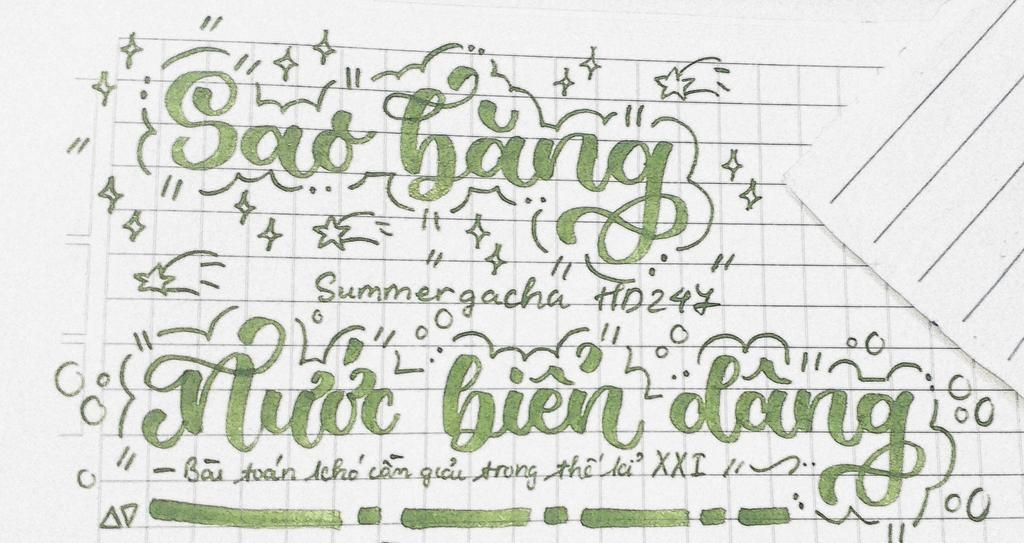 Sao băng
Summergacha HD247
Nước biển dâng
- Bài toán khó cần giải trong thế kỉ XXI